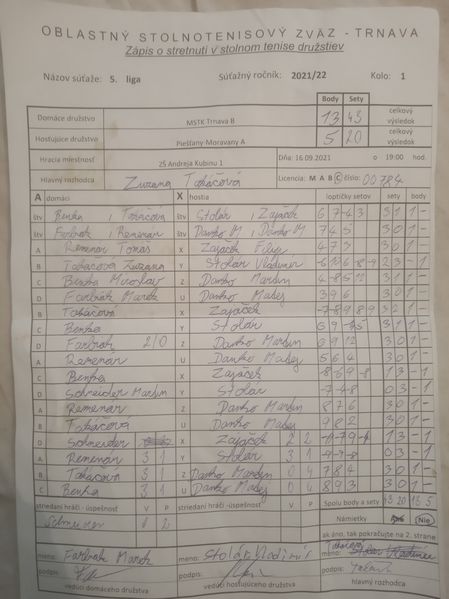 OBLASTNÝ STOLNOTENISOVÝ ZVÄZ - TRNAVA
Zápis o stretnutí v stolnom tenise družstiev
Názov súťaže: 5. liga Súťažný ročník: 2021/22 Kolo: 1
Body Sety
Domáce družstvo MSTK Trnava B 13 43 celkový výsledok
Hosťujúce družstvo Piešťany-Moravany A 5 20 celkový výsledok
Hracia miestnosť ZŠ Andreja Kubinu 1 Dňa: 16.09.2021 o 19:00 hod.
Hlavný rozhodca Zuzana Tabáčová Licencia: M A B C číslo: 00784
A domáci X hostia loptičky setov sety body
štv Benka, štv Stolár, Zajáček 31 1-
štv Farbiak, Remenár štv Danko M, Danko M 30 1-
A Remenár Tomáš X Zajáček Filip 4 7 3 30 1-
B Tabáčová Zuzana Y Stolár Vladimír 23 -1
C Benka Miroslav Z Danko Martin 31 1-
D Farbiak Marek U Danko Matej 3 9 6 30 1-
B Tabáčová X Zajáček 32 1-
C Benka Y Stolár 31 1-
D Farbiak 2/0 Z Danko Martin 6 9 12 30 1-
A Remenár U Danko Matej 5 6 4 30 1-
C Benka X Zajáček 13 -1
D Schneider Martin Y Stolár -7-4-8 03 -1
A Remenár Z Danko Martin 8 7 6 30 1-
B Tabáčová U Danko Matej 9 8 2 30 1-
D Schneider X Zajáček 2 2 13 -1
A Remenár 3 1 Y Stolár 3 1 -9-7-8 03 -1
B Tabáčová 3 1 Z Danko Martin 0 4 7 8 4 30 1-
C Benka 3 1 U Danko Matej 0 4 8 9 3 30 1-
striedaní hráči -úspešnosť V P striedaní hráči -úspešnosť V P Spolu body a sety 43 20 13 5
Námietky Áno Nie
ak áno, tak pokračujte na 2. strane
meno: Farbiak Marek meno: Stolár Vladimír meno: Tabáčová
podpis: podpis: podpis:
vedúci domáceho družstva vedúci hosťujúceho družstva hlavný rozhodca